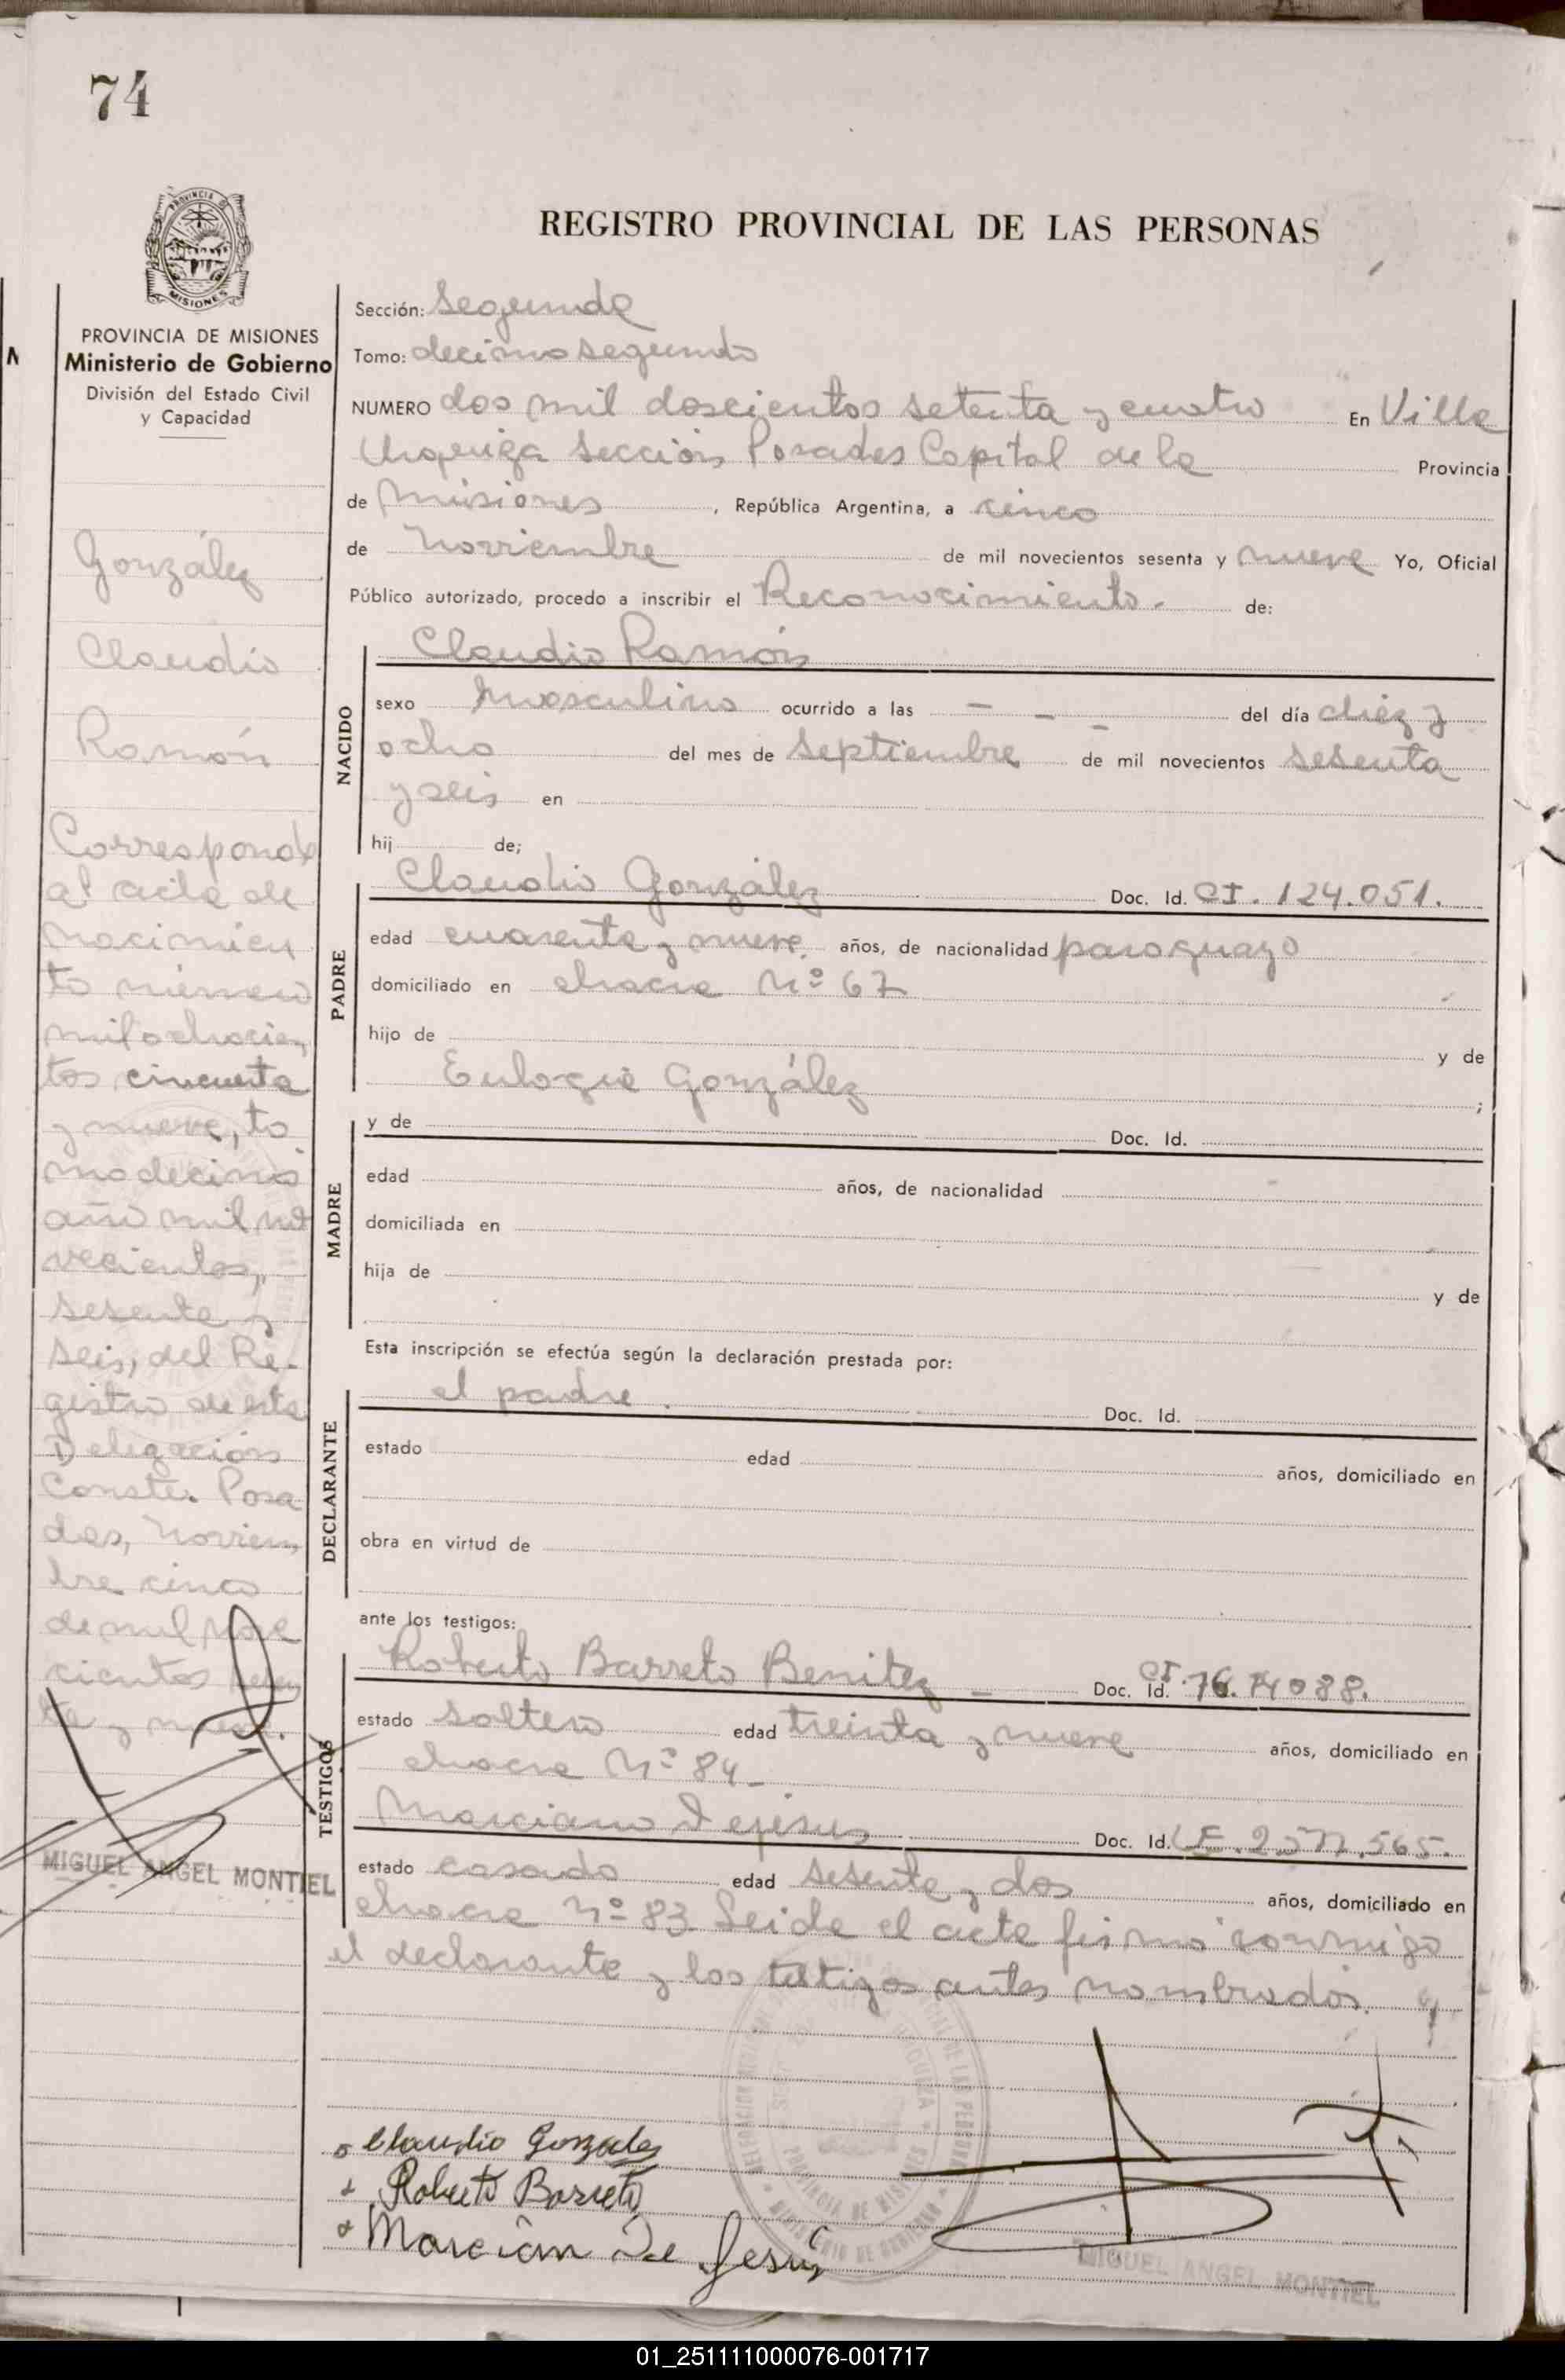 74
REGISTRO PROVINCIAL DE LAS PERSONAS
PROVINCIA DE MISIONES
MISIONES
PROVINCIA DE MISIONES
Ministerio de Gobierno
División del Estado Civil
y Capacidad
González
Claudio
Ramón
Corresponde
al acta de
nacimien
to número
mil ochocien
tos cincuenta
y nueve, to
mo decimo
año mil no
vecientos,
sesenta y
seis, del Re-
gistro de esta
Delegación
Conste. Posa
das, Noviem
bre cinco
de mil nove
cientos sesen
ta y nueve.
MIGUEL ANGEL MONTIEL
Sección: Segunda
Tomo: decimo segundo
NUMERO dos mil doscientos setenta y cuatro En Villa
Urquiza Sección Posadas Capital de la Provincia
de Misiones, República Argentina, a cinco
de Noviembre de mil novecientos sesenta y nueve Yo, Oficial
Público autorizado, procedo a inscribir el Reconocimiento. de:
NACIDO
Claudio Ramón
sexo masculino ocurrido a las - - - del día diez y
ocho del mes de septiembre de mil novecientos sesenta
y seis en
hij de;
PADRE
Claudio González Doc. Id. CI. 124.051.
edad cuarenta y nueve. años, de nacionalidad paraguayo
domiciliado en chacra Nº 67
hijo de y de
Eulogia González ;
MADRE
y de Doc. Id.
edad años, de nacionalidad
domiciliada en
hija de y de
Esta inscripción se efectúa según la declaración prestada por:
DECLARANTE
el padre. Doc. Id.
estado edad años, domiciliado en
obra en virtud de
ante los testigos:
TESTIGOS
Roberto Barreto Benitez - Doc. Id. CI.
estado soltero edad treinta y nueve años, domiciliado en
chacra Nº 84-
Marciano Dejesus Doc. Id. LE.
estado casado edad sesenta y dos años, domiciliado en
chacra Nº 83 Leida el acta firmó conmigo
el declarante y los testigos antes nombrados.
Claudio Gonzalez
Roberto Barreto
Marcian De Jesús
MIGUEL ANGEL MONTIEL
01_251111000076-001717